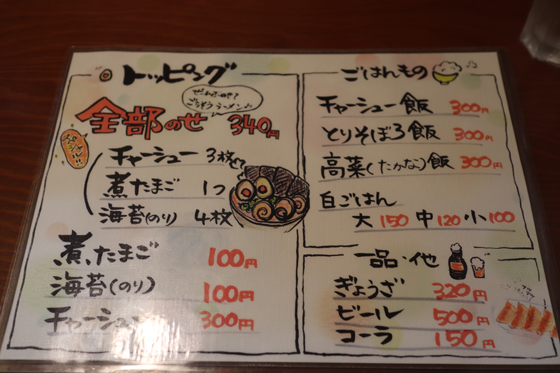 トッピング
ごちそうラーメン♪
全部のせ 340円
チャーシュー 3枚
煮たまご 1つ
海苔(のり) 4枚
煮たまご 100円
海苔(のり) 100円
チャーシュー 300円
ごはんもの
チャーシュー飯 300円
とりそぼろ飯 300円
高菜(たかな)飯 300円
白ごはん
大150 中120 小100
一品・他
ぎょうざ 320円
ビール 500円
コーラ 150円